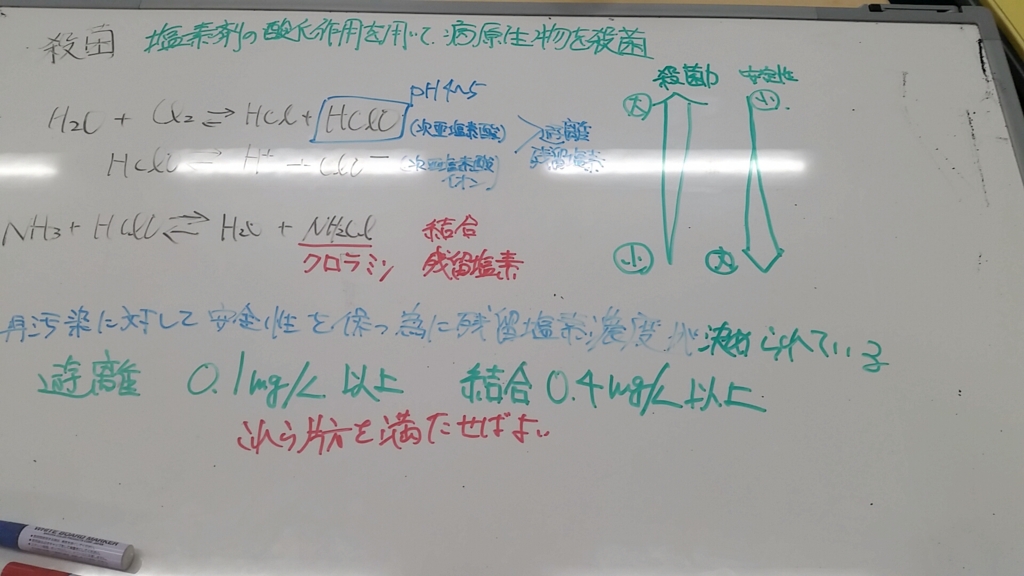 殺菌 塩素剤の酸化作用を用いて、病原生物を殺菌
殺菌力 安定性
大 小
pH4~5
H₂O + Cl₂ ⇌ HCl + HClO (次亜塩素酸)
HClO ⇌ H⁺ + ClO⁻ (次亜塩素酸イオン)
遊離
残留塩素
NH₃ + HClO ⇌ H₂O + NH₂Cl 結合
クロラミン 残留塩素
小 大
再汚染に対して安全性を保つ為に残留塩素濃度が決められている
遊離 0.1mg/L以上 結合0.4mg/L以上
これら片方を満たせばよい
WHITE BOARD MARKER